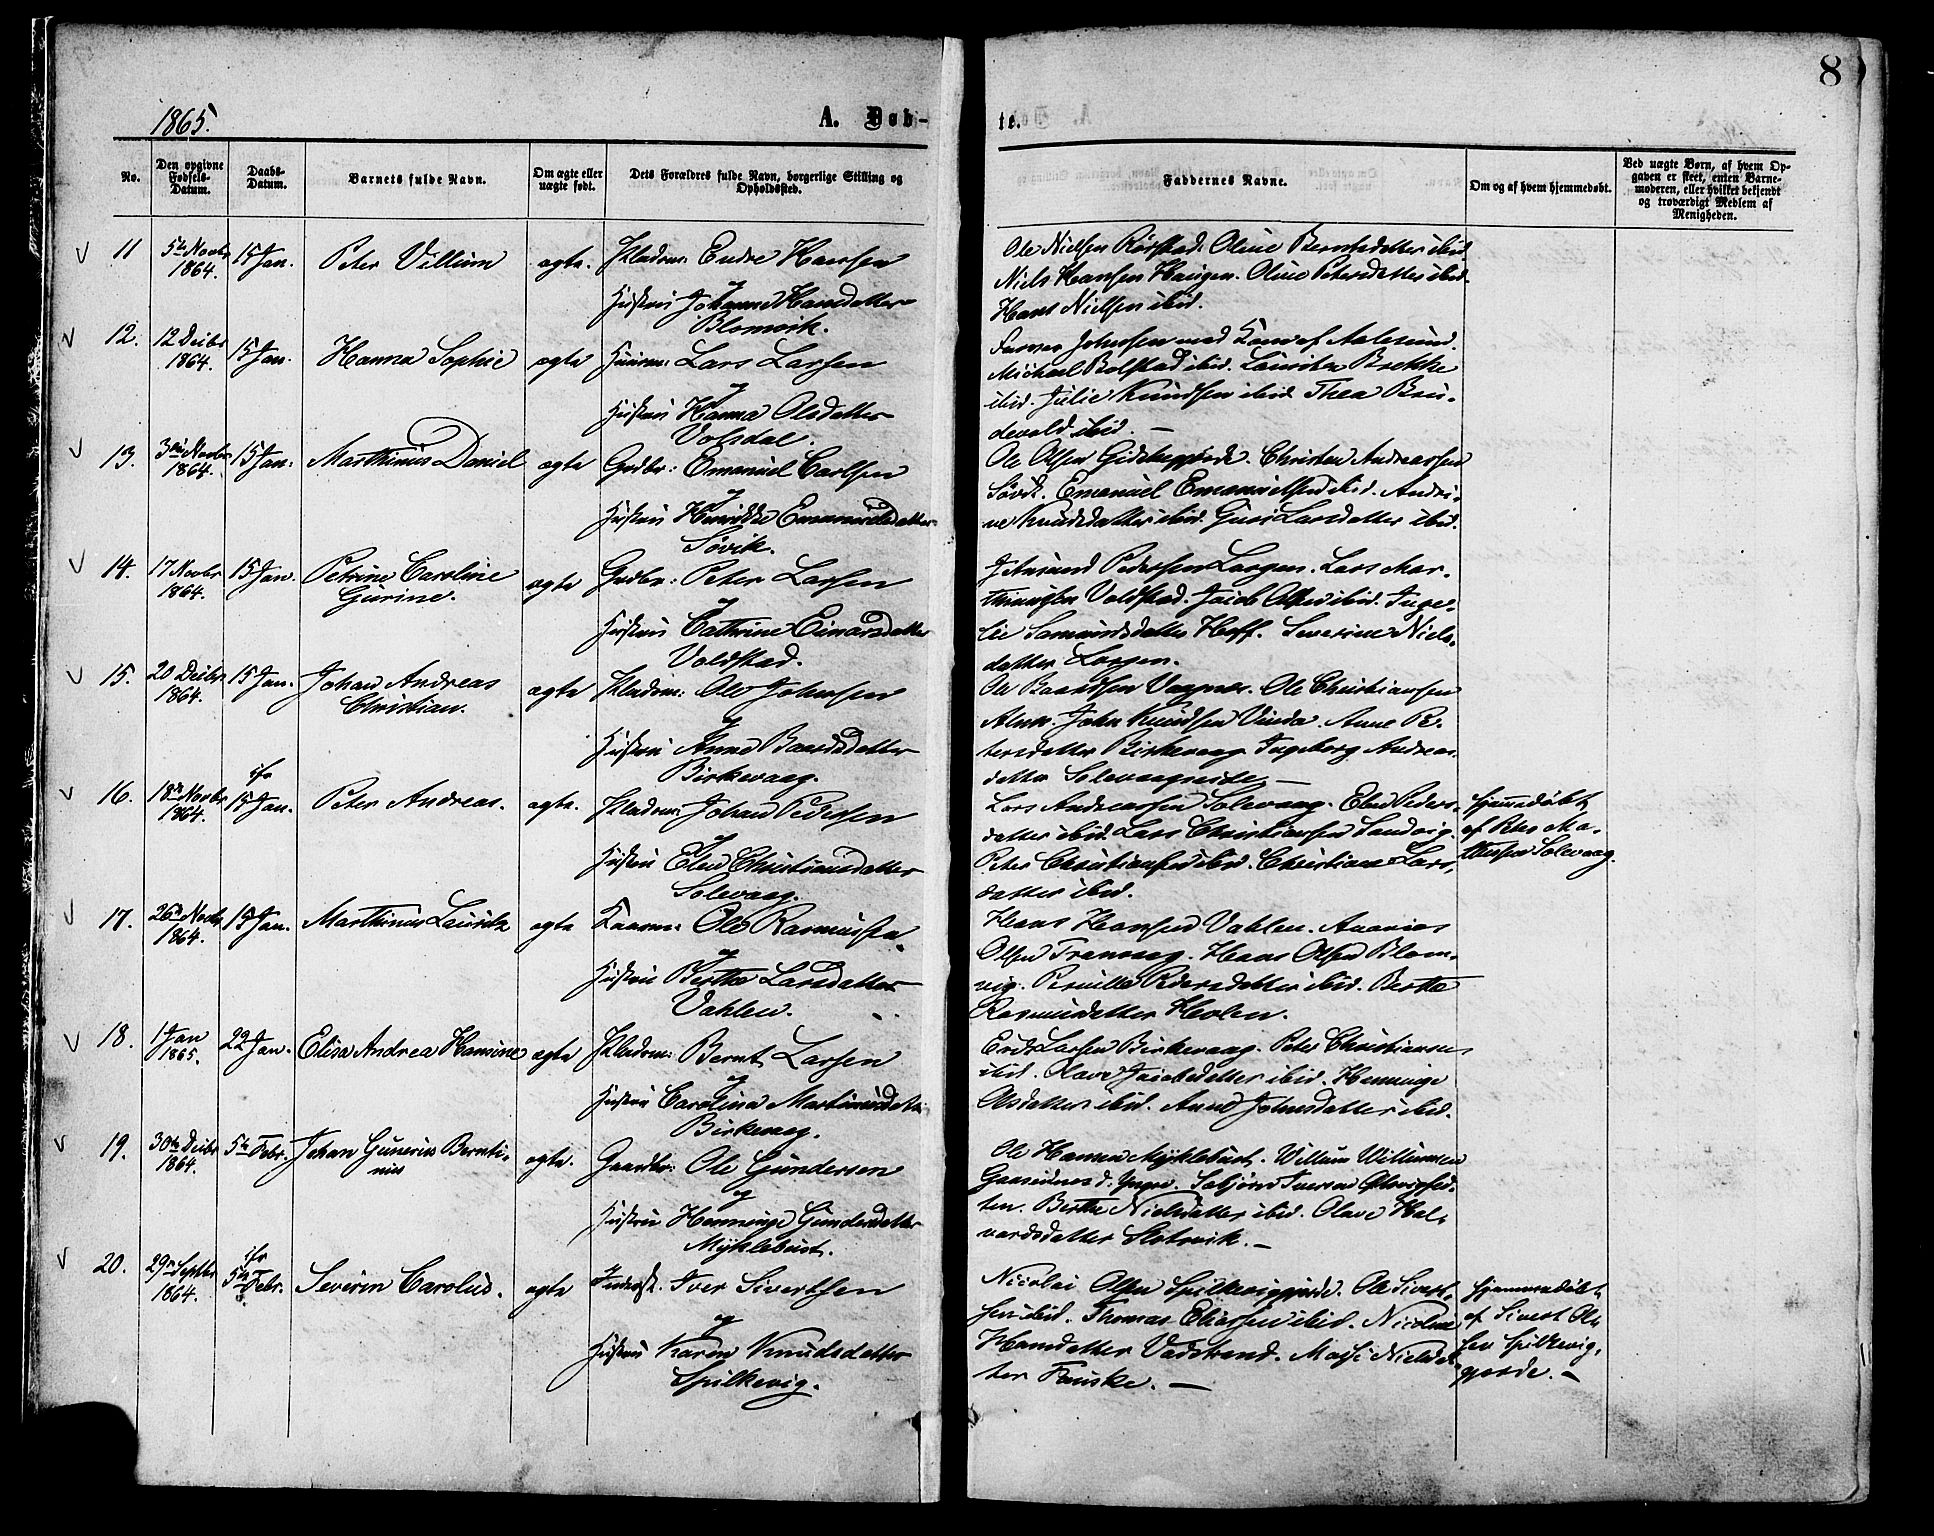 8
1865.
A. Døb-
te.
No.
Den opgivne Fødsels-Datum.
Daabs-Datum.
Barnets fulde Navn.
Om ægte eller uægte født.
Dets Forældres fulde Navn, borgerlige Stilling og Opholdssted.
Faddernes Navne.
Om og af hvem hjemmedøbt.
Ved uægte Børn, af hvem Opgaven er skeet, enten Barnemoderen, eller hvilket bekjendt og troværdigt Medlem af Menigheden.
11 5te Novbr 1864. 15 Jan. Peter Villum ægte. Huadm: Endre Hansen
og
Hustru Johanne Hansdatter
Blomvik.
Ole Nielsen Rørstad. Oline Berntsdatter ibid.
Niels Hansen Haugen. Oline Petersdatter ibid.
Hans Nielsen ibid.
12. 12 Decbr 1864. 15 Jan. Hanna Sophie ægte Lars Larsen
og
Hustru Hanna Olsdatter
Volsdal.
Johnsen med Kone af Aalesund.
Michael Bolstad ibid. Lauritz Brekke
ibid. Julie Knudsen ibid Thea Bru-
devold ibid. —
13. 3die Novbr 1864. 15 Jan. Marthinus Daniel ægte Grdbr: Emanuel Carlsen
og
Hustru Henrikke Emanuelsdatter
Søvik.
Ole Olsen Christen Andreassen
Søvik. Emanuel Emanuelsen ibid. Andri-
ne Knudsdatter ibid. Guri Larsdatter ibid.
14. 17 Novbr 1864. 15 Jan. Petrine Caroline
Gurine. ægte Grdbr: Peter Larsen
og
Hustru Cathrine Einarsdatter
Voldstad.
Pedersen Lorgen. Lars Mar-
thinussen Voldstad. Jacob Olsen ibid. Inge-
Hoff. Severine Niels-
datter Lorgen.
15. 20 Decbr 1864. 15 Jan. Johan Andreas
Christian. ægte Ole Johnsen
og
Hustru Anne Baardsdatter
Birkevaag.
Ole Baardsen Vaagnes. Ole Christiansen
John Knudsen Anne Pe-
tersdatter Birkevaag Ingeborg Andreas-
datter —
16. 18de Novbr 1864. ifr 15 Jan. Peter Andreas. ægte. Johan Pedersen
og
Hustru Elen Christiansdatter
Solevaag.
Lars Andreassen Solevaag. Elen Peders-
datter ibid. Lars Christiansen Sandvig.
Peter Christiansen ibid. Christiane Lars-
datter ibid.
Hjemmedøbt
af Peter Ma-
thisen Solevaag.
17. 26de Novbr 1864. 15 Jan. Marthinus Lauritz ægte Ole Rasmussen
og
Hustru Berthe Larsdatter
Vahlen.
Hans Hansen Vahlen. Ananias
Olsen Tranvaag. Hans Olsen Blom-
vig. Pernille Pedersdatter ibid. Berthe
Rasmusdatter Holen.
18. 1 Jan 1865. 22 Jan. Elisa Andrea Hansine ægte Bernt Larsen
og
Hustru Carolina Martinusdatr
Birkevaag.
Endre Larsen Birkevaag. Peter Christiansen
ibid. Olave Jacobsdatter ibid. Henninge
Olsdatter ibid. Anne Johnsdatter ibid.
19. 30te Decbr 1864. 5te Febr. Johan Gunerius Bernti-
nus ægte. Gaardbr: Ole Gundersen
og
Hustru Henninge Gundersdatter
Myklebust.
Ole Hansen Myklebust. Willum Willumsen
ten. Berthe Nielsdatter ibid. Olave Hal-
vardsdatter Slotsvik. —
20. 29de Septbr 1864. ifr 5te Febr. Severin Carolus. ægte Iver Sivertsen
og
Hustru Karen Knudsdatter
Spilkevig.
Nicolai Olsen Spilkeviggjerde. Ole Sivert-
sen ibid. Thomas Eliassen ibid. Nicoline
Hansdatter Vadstrand. Nielsdat-
ter Fauske. —
hjemmedøbt
af Sivert Ol-
sen Spilkevig-
gjerde. —